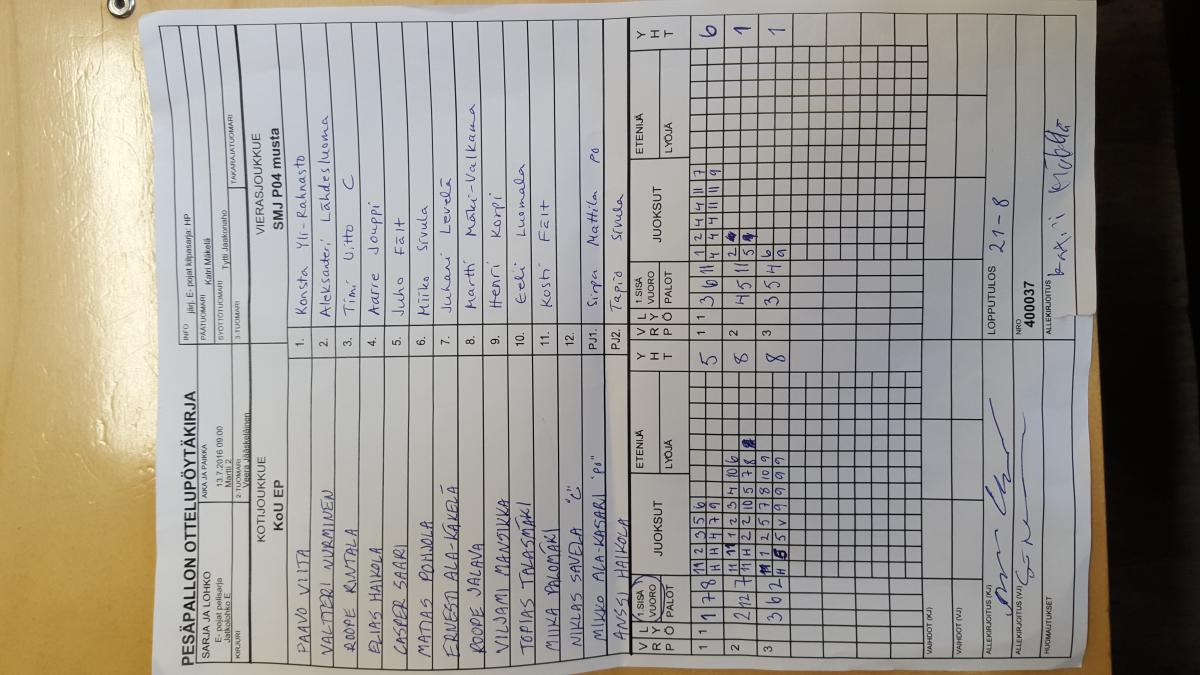 PESÄPALLON OTTELUPÖYTÄKIRJA
SARJA JA LOHKO
E- pojat pelisarja
Jatkolohko E
AIKA JA PAIKKA
13.7.2016 09:00
Martti 2
INFO järj. E- pojat kilpasarja: HP
PÄÄTUOMARI Katri Mäkelä
SYÖTTÖTUOMARI Tytti Jaakonaho
KIRJURI
2-TUOMARI
Veera Jääskeläinen
3-TUOMARI
TAKARAJATUOMARI
KOTIJOUKKUE
KoU EP
VIERASJOUKKUE
SMJ P04 musta
PAAVO VIITA 1. Konsta Yli-Rahnasto
VALTTERI NURMINEN 2. Aleksanteri Lähdesluoma
ROOPE RINTALA 3. Timi Uitto C
ELIAS HAIKOLA 4. Aarre Jouppi
CASPER SAARI 5. Juho Fält
MATIAS POHJOLA 6. Miiko Sivula
ERNESTI ALA-KÄKELÄ 7. Juhani Levelä
ROOPE JALAVA 8. Martti Mäki-Valkama
VILJAMI MANSIKKA 9. Henri Korpi
TOPIAS TALASMÄKI 10. Eeli Luomala
MIIKA PALOMÄKI 11. Kosti Fält
NIKLAS SAVELA "C" 12.
MIKKO ALA-KASARI "PO" PJ1. Sirpa Mattila PO
ANSSI HAIKOLA PJ2. Tapio Sivula
V R P L Y Ö 1 SISÄ VUORO PALOT JUOKSUT ETENIJÄ LYÖJÄ Y H T
V R P L Y Ö 1 SISÄ VUORO PALOT JUOKSUT ETENIJÄ LYÖJÄ Y H T
1 1 1 7 8 11 2 3 5 6 5
1 1 3 6 11 1 2 4 4 11 7 6
H H 4 7 9
4 4 4 11 11 9
2 2 12 7 11 11 1 2 3 4 10 6 8
2 4 5 11 2 1
11 H 2 2 10 5 7 8
5
3 3 6 2 11 1 2 5 7 8 10 9 8
3 3 5 4 6 1
H 5 V 9 9 9 9
9
VAIHDOT (KJ)
VAIHDOT (VJ)
ALLEKIRJOITUS (KJ)
LOPPUTULOS 21-8
ALLEKIRJOITUS (VJ)
NRO
400037
HUOMAUTUKSET
ALLEKIRJOITUS